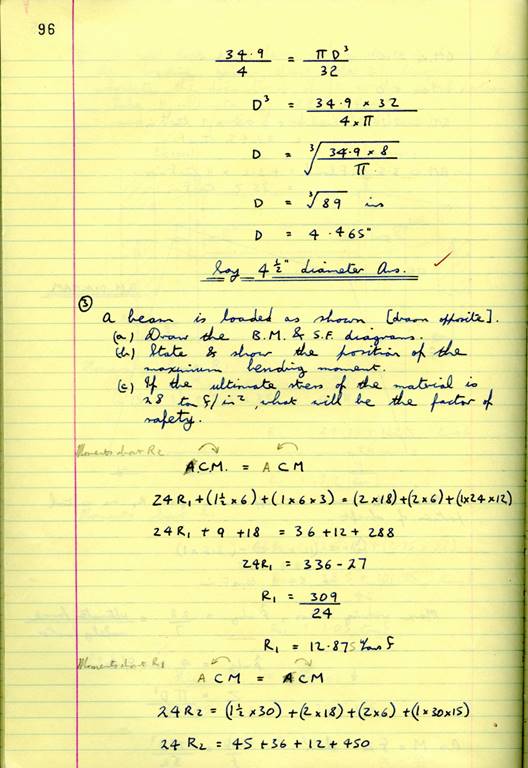 96
34·9/4 = πD³/32
D³ = 34·9 × 32/4×π
D = ∛34·9 × 8/π
D = ∛89 ins
D = 4·465"
Say 4 ½" diameter Ans. ✓
③
A beam is loaded as shown [drawn opposite].
(a) Draw the B.M. & S.F. diagrams.
(b) State & show the position of the
maximum bending moment.
(c) If the ultimate stress of the material is
28 ton f/in², what will be the factor of
safety.
Moments about R2
A.C.M. = A C M
24R₁ + (1½ × 6) + (1 × 6 × 3) = (2 × 18) + (2 × 6) + (1×24×12)
24R₁ + 9 + 18 = 36 + 12 + 288
24R₁ = 336 - 27
R₁ = 309/24
R₁ = 12·875 tons f
Moments about R1
A C M = A C M
24 R2 = (1½ × 30) + (2 × 18) + (2×6) + (1×30×15)
24 R2 = 45 + 36 + 12 + 450